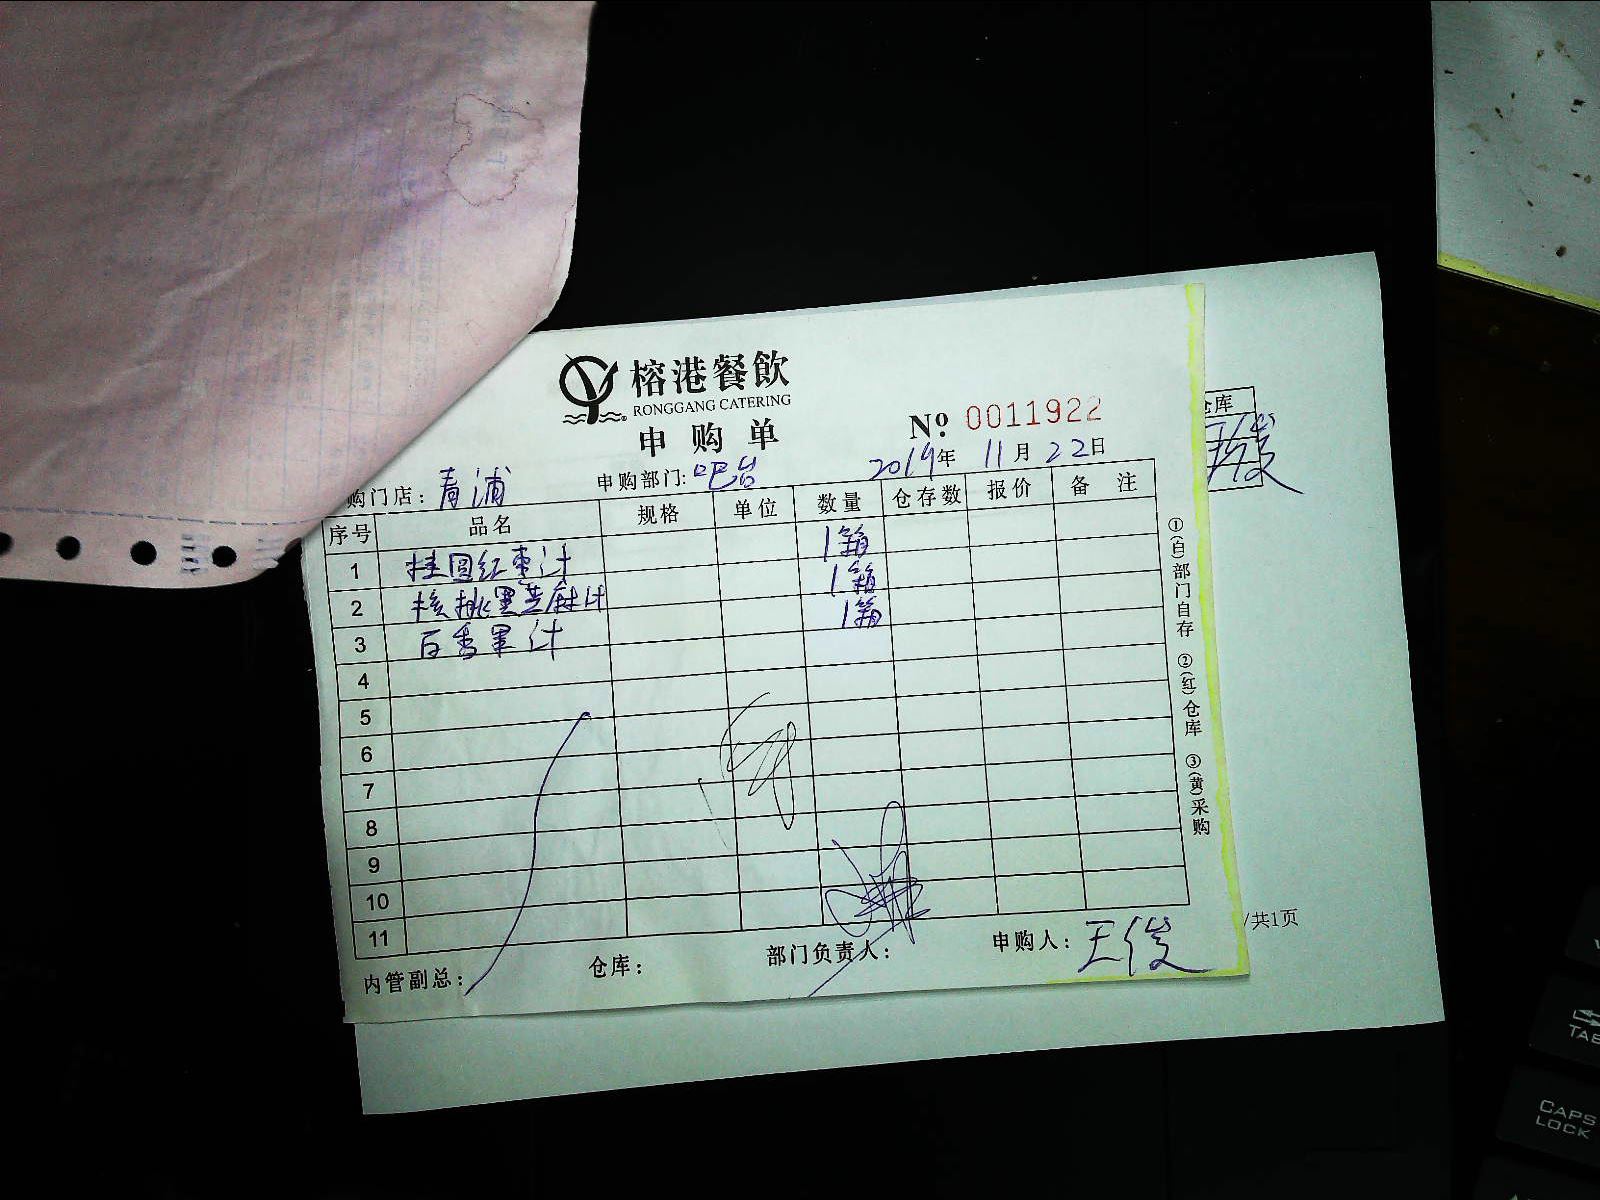 榕港餐飲
RONGGANG CATERING
申购单
№ 0011922
购门店：青浦 申购部门：吧台 2019年 11月 22日
序号 品名 规格 单位 数量 仓存数 报价 备注
1 桂圆红枣汁 1箱
2 核桃黑芝麻汁 1箱
3 百香果汁 1箱
4
5
6
7
8
9
10
11
内管副总： 仓库： 部门负责人： 申购人：王俊
①(白)部门自存 ②(红)仓库 ③(黄)采购
仓库
王俊
/共1页
TAB
CAPS LOCK